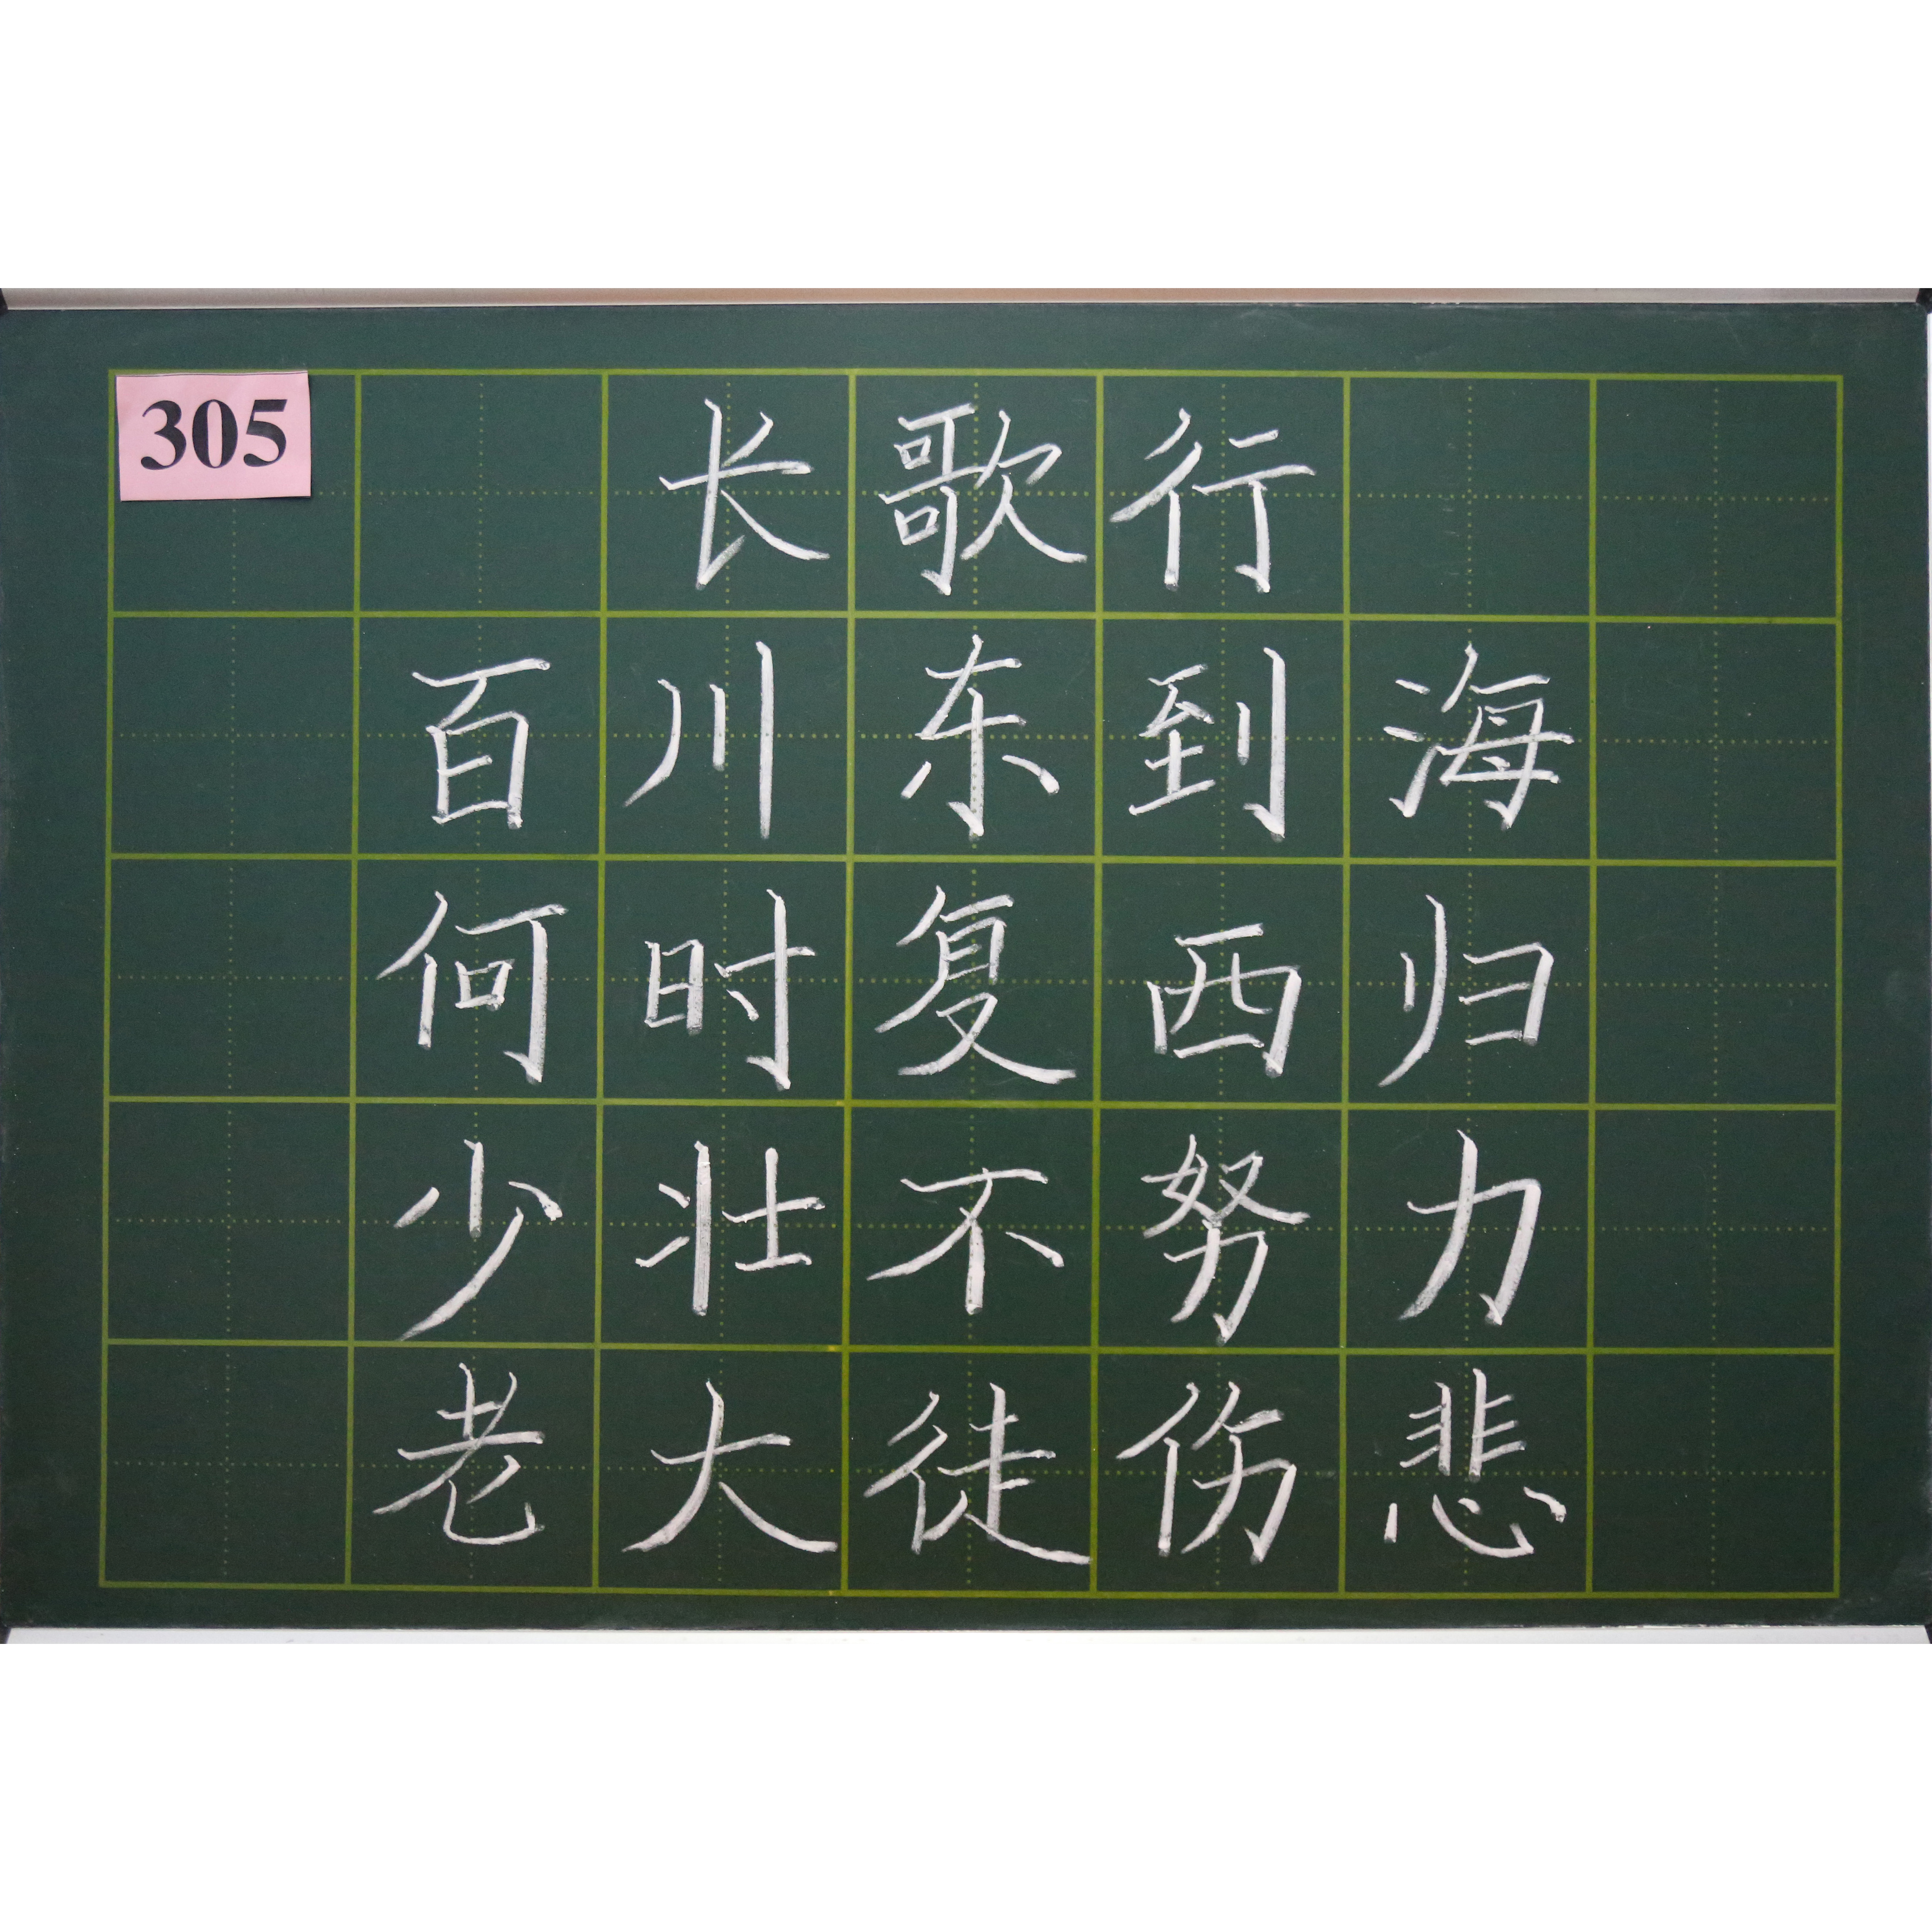 305
长歌行
百川东到海
何时复西归
少壮不努力
老大徒伤悲